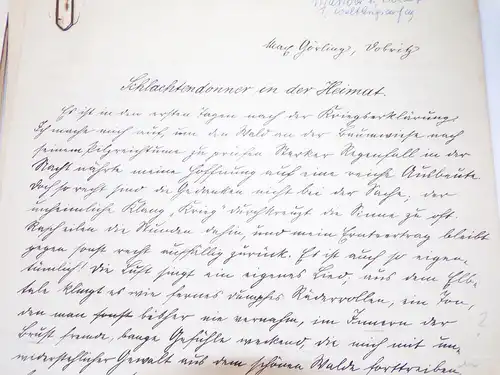 Max Görling, Dobritz
Schlachtendonner in der Heimat.
Es ist in den ersten Tagen nach der Kriegserklärung.
Ich mache mich auf, um den Wald an der Baumwiese nach
seinem Pilzreichtume zu prüfen. Starker Regenfall in der
Nacht nährte meine Hoffnung auf eine reiche Ausbeute.
Doch so recht sind die Gedanken nicht bei der Sache; der
unheimliche Klang „Krieg" durchkreuzt die Sinne zu oft.
Rasch eilen die Stunden dahin, und mein Ernteertrag bleibt
gegen sonst recht auffällig zurück. Es ist auch so eigen-
tümlich! Die Luft singt ein eigenes Lied, aus dem Elb-
tale klingt es wie fernes dumpfes Räderrollen, ein Ton,
den man sonst bisher nie vernahm, im Innern der
Brust fremde, bange Gefühle weckend die mich mit un-
widerstehlicher Gewalt aus dem schönen Walde forttreiben